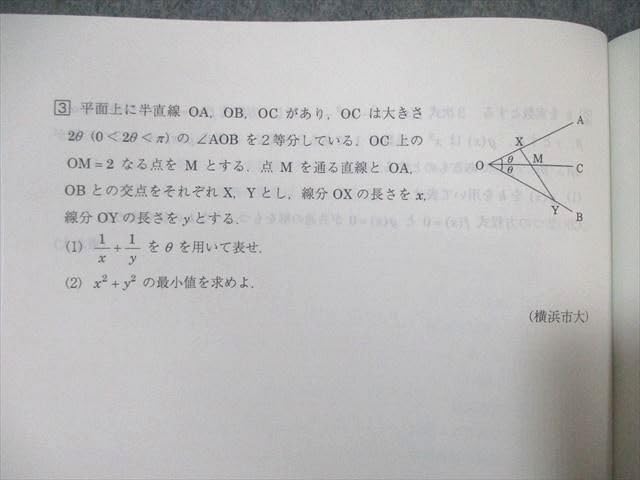 3 平面上に半直線 OA, OB, OC があり, OC は大きさ
2θ (0<2θ<π) の ∠AOB を2等分している. OC 上の
OM=2 なる点を M とする. 点 M を通る直線と OA,
OB との交点をそれぞれ X, Y とし, 線分 OX の長さを x,
線分 OY の長さを y とする.
(1) 1/x + 1/y を θ を用いて表せ.
(2) x² + y² の最小値を求めよ.
(横浜市大)
A
X
M
O
θ
θ
C
Y
B